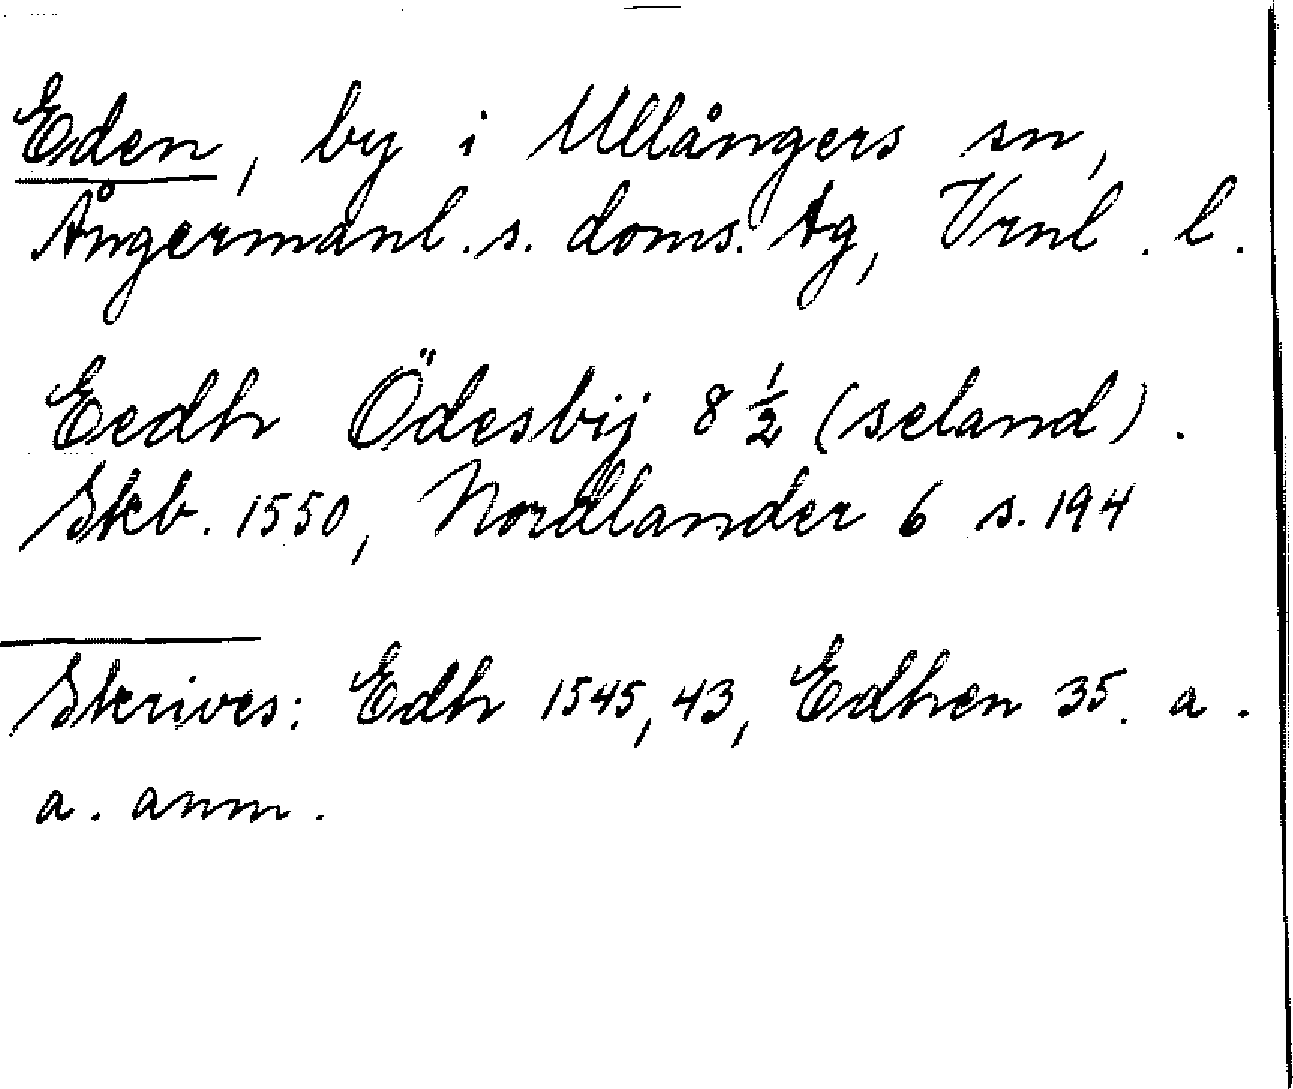 Eden, by i Ullångers sn,
Ångermanl. s. doms. tg, Vrnl. l.
Eedh Ödesbij 8 ½ (seland).
Skb. 1550, Nordlander 6 s. 194
Skrives: Edh 1545, 43, Edhen 35. a.
a. anm.